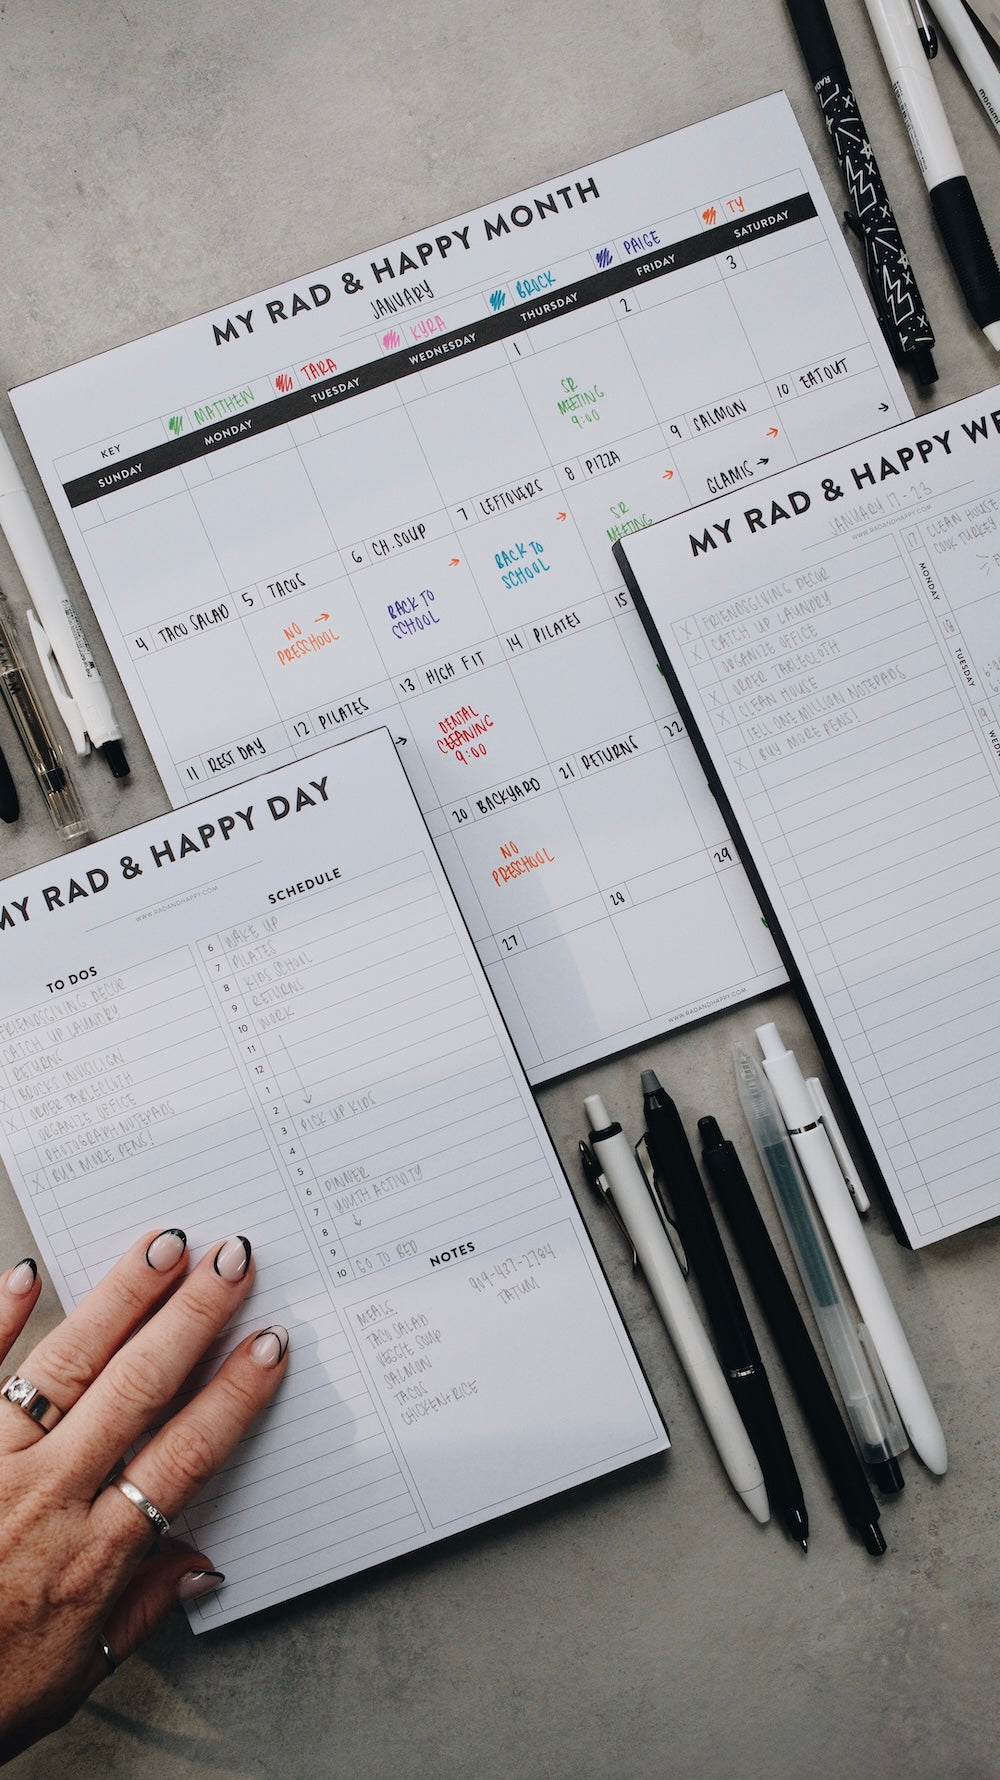 MY RAD & HAPPY MONTH
JANUARY
KEY MATTHEW TARA KYRA BROCK PAIGE TY
SUNDAY MONDAY TUESDAY WEDNESDAY THURSDAY FRIDAY SATURDAY
1 2 3
SR
MEETING
9:00
4 TACO SALAD 5 TACOS 6 CH. SOUP 7 LEFTOVERS 8 PIZZA 9 SALMON 10 EATOUT
NO →
PRESCHOOL
→
BACK TO
SCHOOL
→
BACK TO
SCHOOL
→
SR
MEETING
→
GLAMIS →
→
11 REST DAY 12 PILATES 13 HIGH FIT 14 PILATES 15
→
DENTAL
CLEANING
9:00
20 BACKYARD 21 RETURNS 22
NO
PRESCHOOL
27 28 29
WWW.RADANDHAPPY.COM
MY RAD & HAPPY WE
JANUARY 17-23
WWW.RADANDHAPPY.COM
X FRIENDSGIVING DECOR
X CATCH UP LAUNDRY
ORGANIZE OFFICE
X ORDER TABLECLOTH
X CLEAN HOUSE
SELL ONE MILLION NOTEPADS
X BUY MORE PENS!
17 CLEAN HOUSE
COOK TURKEY
MONDAY
18
TUESDAY
19
WEDN
MY RAD & HAPPY DAY
WWW.RADANDHAPPY.COM
TO DOS
FRIENDSGIVING DECOR
CATCH UP LAUNDRY
X RETURNS
X BROCKS INVISILIGN
ORDER TABLECLOTH
X ORGANIZE OFFICE
PHOTOGRAPH NOTEPADS
X BUY MORE PENS!
SCHEDULE
6 WAKE UP
7 PILATES
8 KIDS SCHOOL
9 RETURNS
10 WORK
11
12
1
2 ↓
3 PICK UP KIDS
4
5
6 DINNER
7 YOUTH ACTIVITY
8 ↓
9
10 GO TO BED
NOTES
MEALS
TACO SALAD
VEGGIE SOUP
SALMON
TACOS
CHICKEN+RICE
909-437-2784
TATUM
RAD
monami